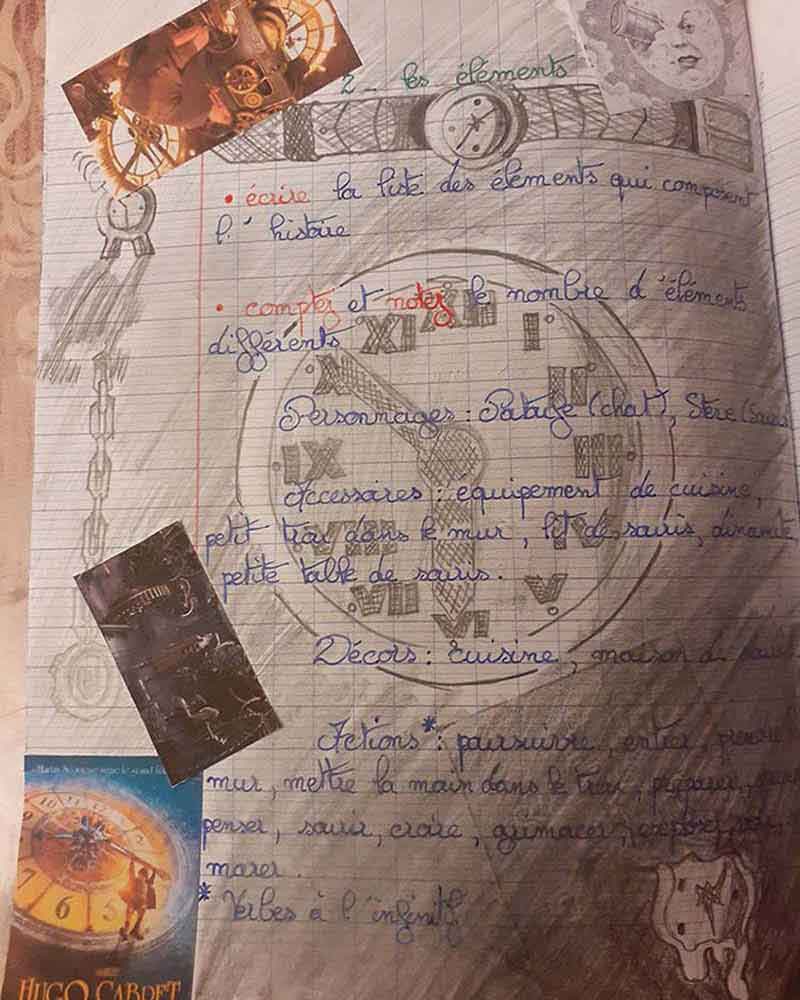 2 - les éléments
• écrire la liste des élements qui composent
l'histoire
• comptez et notez le nombre d'éléments
différents
Personnages : Patage (chat), Stère (Souris
Accessoires : équipement de cuisine,
petit trou dans le mur, lit de souris, dinamite,
petite table de souris.
Décors : cuisine, maison de
Actions* : poursuivre, entrer, prendre
mur, mettre la main dans le trou, préparer,
penser, savoir, croire, grimacer, exploser,
marer.
* Verbes à l'infinitif.
XII
XI I
X II
IX III
VIII IV
VII V
VI
7 6 5
HUGO CABRET